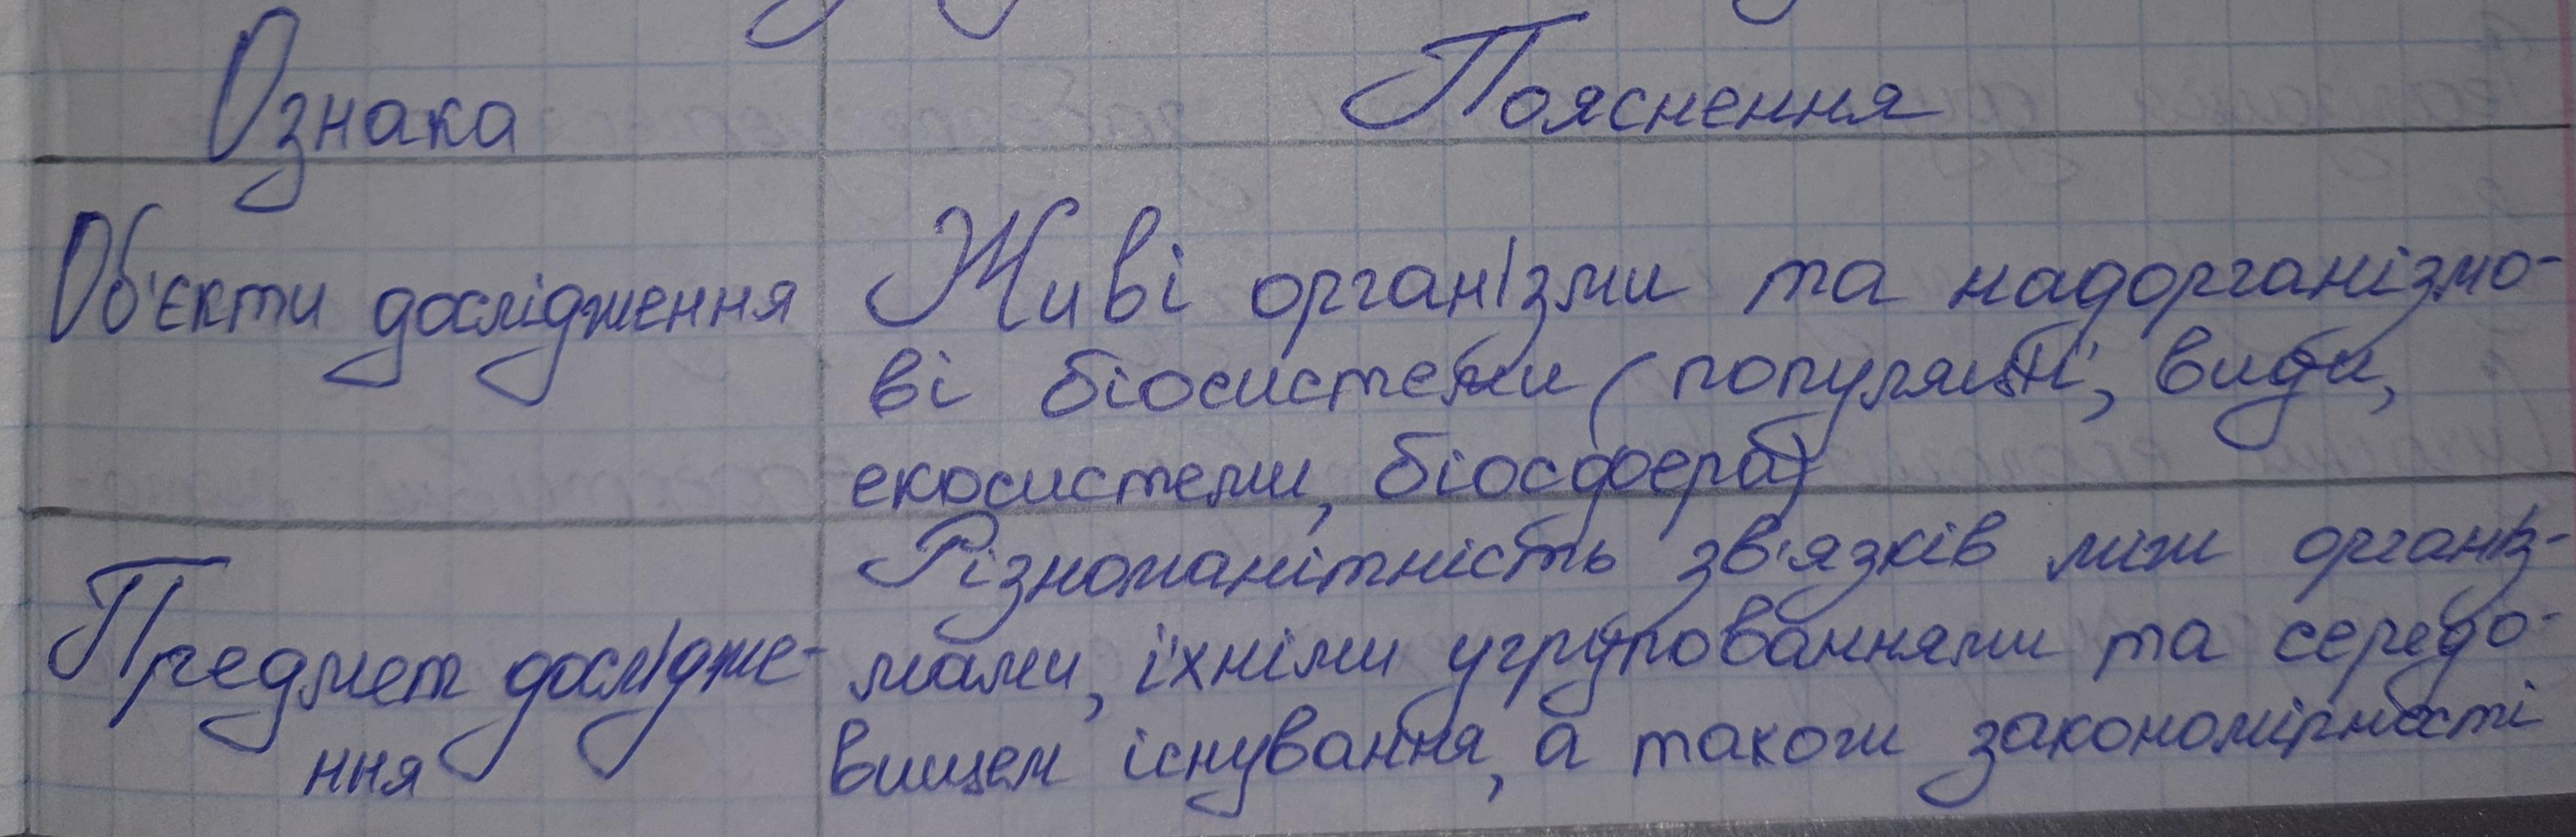 Ознака
Пояснення
Об'єкти дослідження
Живі організми та надорганізмо-
ві біосистеми (популяції, види,
екосистеми, біосфера)
Предмет дослідже-
ння
Різноманітність зв'язків між організ-
мами, їхніми угрупованнями та середо-
вищем існування, а також закономірності